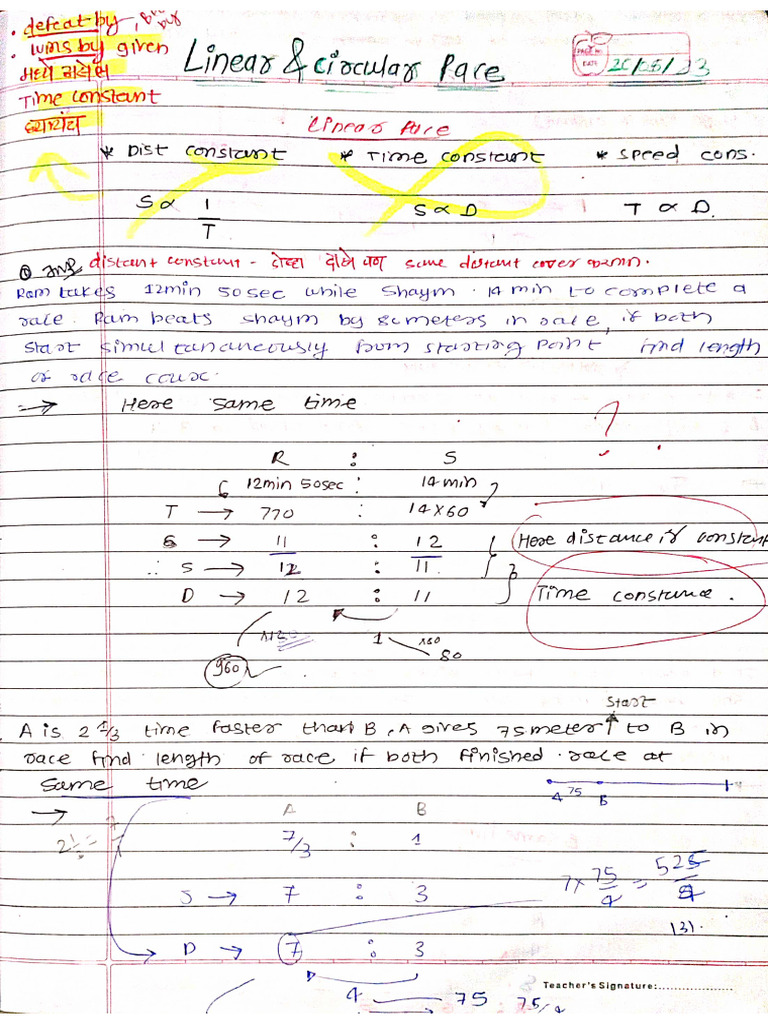 • defeat by,
• wins by given
Time constant
Linear & circular Race
PAGE NO.
DATE
Linear Race
* Dist constant * Time constant * Speed cons.
S ∝ 1/T S ∝ D T ∝ D.
distant constant - जेव्हा दोघे पण same distant cover करतात.
Ram takes 12min 50sec while Shaym 14 min to complete a
race. Ram beats Shaym by 80 meters in race, if both
start simultancuously from starting point find length
of race course.
→ Here same time
?
R : S
12min 50sec : 14 min
T → 770 : 14×60
11 : 12 Here distance is constant
∴ S → 12 : 11
D → 12 : 11 Time constance.
1 ×80
80
960
Start
A is 2 1/3 time faster than B, A gives 75 meter to B in
race find length of race if both finished race at
same time
A 75 B
→ A B
7/3 : 1
S → 7 : 3 7 × 75/4 = 525/4
131.
D → 7 : 3
Teacher's Signature:
4 — 75 75/4